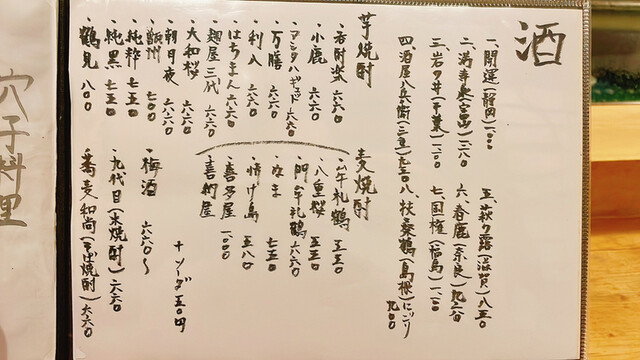 酒
一、開運(静岡)一、一〇〇
二、満寿泉(富山)一、二八〇
三、岩の井(千葉)一、二〇〇
四、酒屋八兵衛(三重)九五〇
五、萩の露(滋賀)八五〇
六、春鹿(奈良)九二〇
七、国権(福島)一、一〇〇
八、扶桑鶴(島根)にごり 九〇〇
芋焼酎
小鹿 六六〇
万膳 六六〇
利八 六六〇
はちまん 六六〇
麹屋三代 六六〇
大和桜 六六〇
朝日夜 六六〇
純粋 七五〇
純黒 七五〇
鶴見 八〇〇
麦焼酎
八重桜 五五〇
一門牟礼鶴 六六〇
なま 七五〇
情け島 五八〇
喜多屋 一、〇〇〇
喜納屋
+ソーダ 五〇円
梅酒 六六〇〜
九代目(米焼酎)六六〇
蕎麦和尚(そば焼酎)六六〇
穴子料理